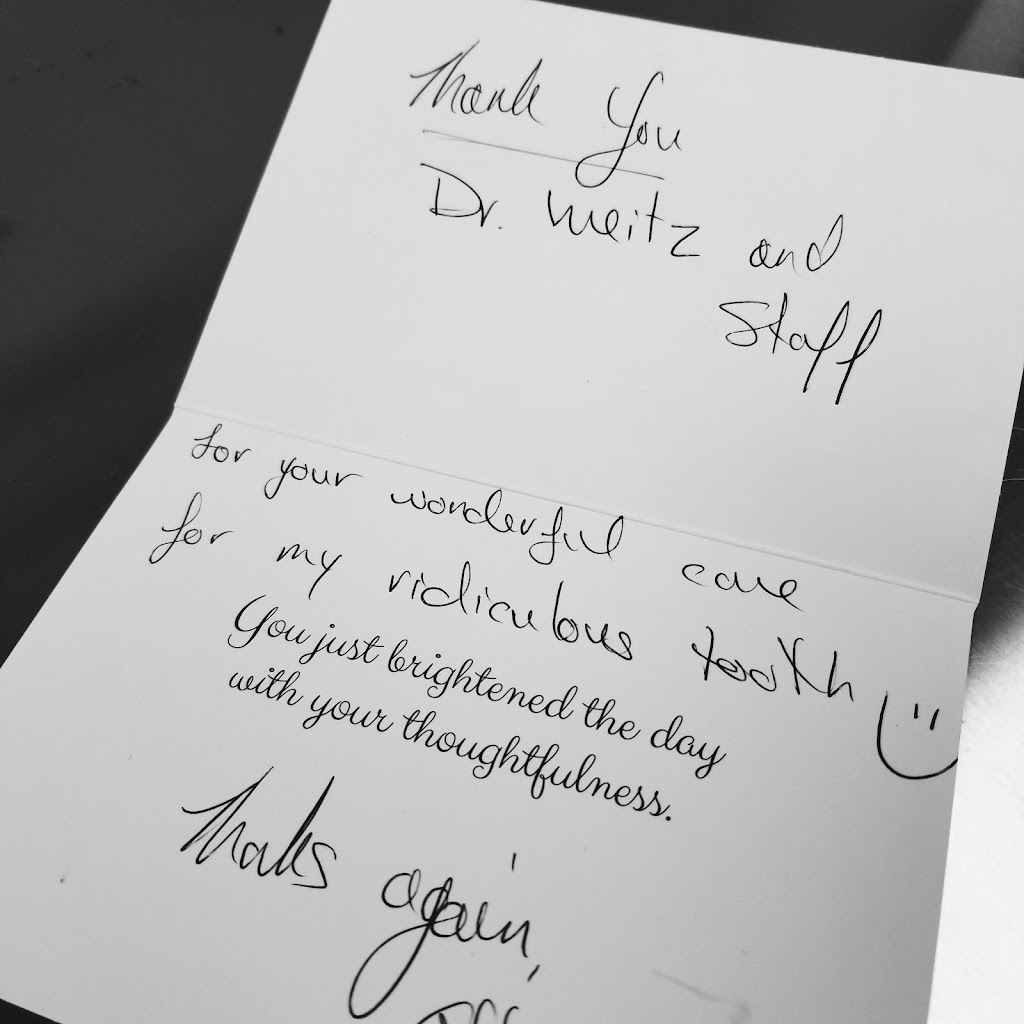 Thank You
Dr. Weitz and
Staff
for your wonderful care
for my ridiculous tooth
You just brightened the day
with your thoughtfulness.
Thanks again,